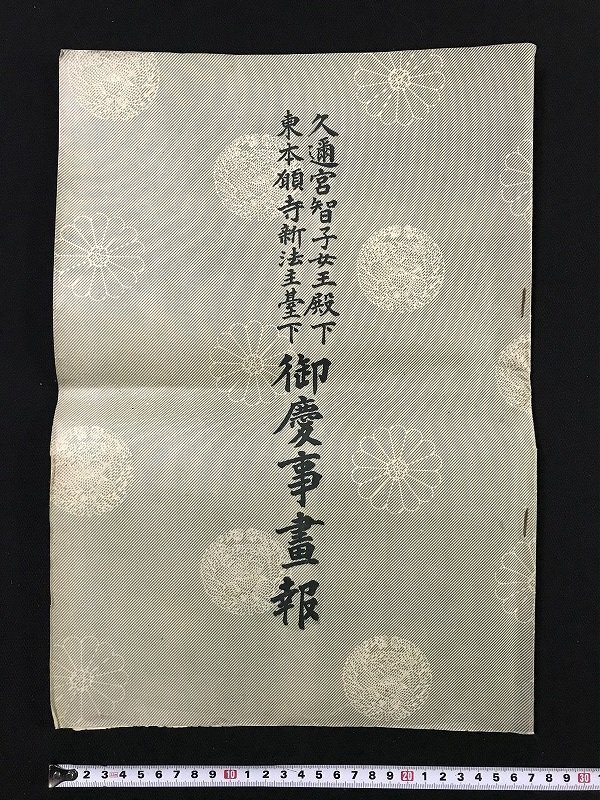 久邇宮智子女王殿下
東本願寺新法主臺下
御慶事畫報
2 3 4 5 6 7 8 9 10 1 2 3 4 5 6 7 8 9 20 1 2 3 4 5 6 7 8 9 30 1